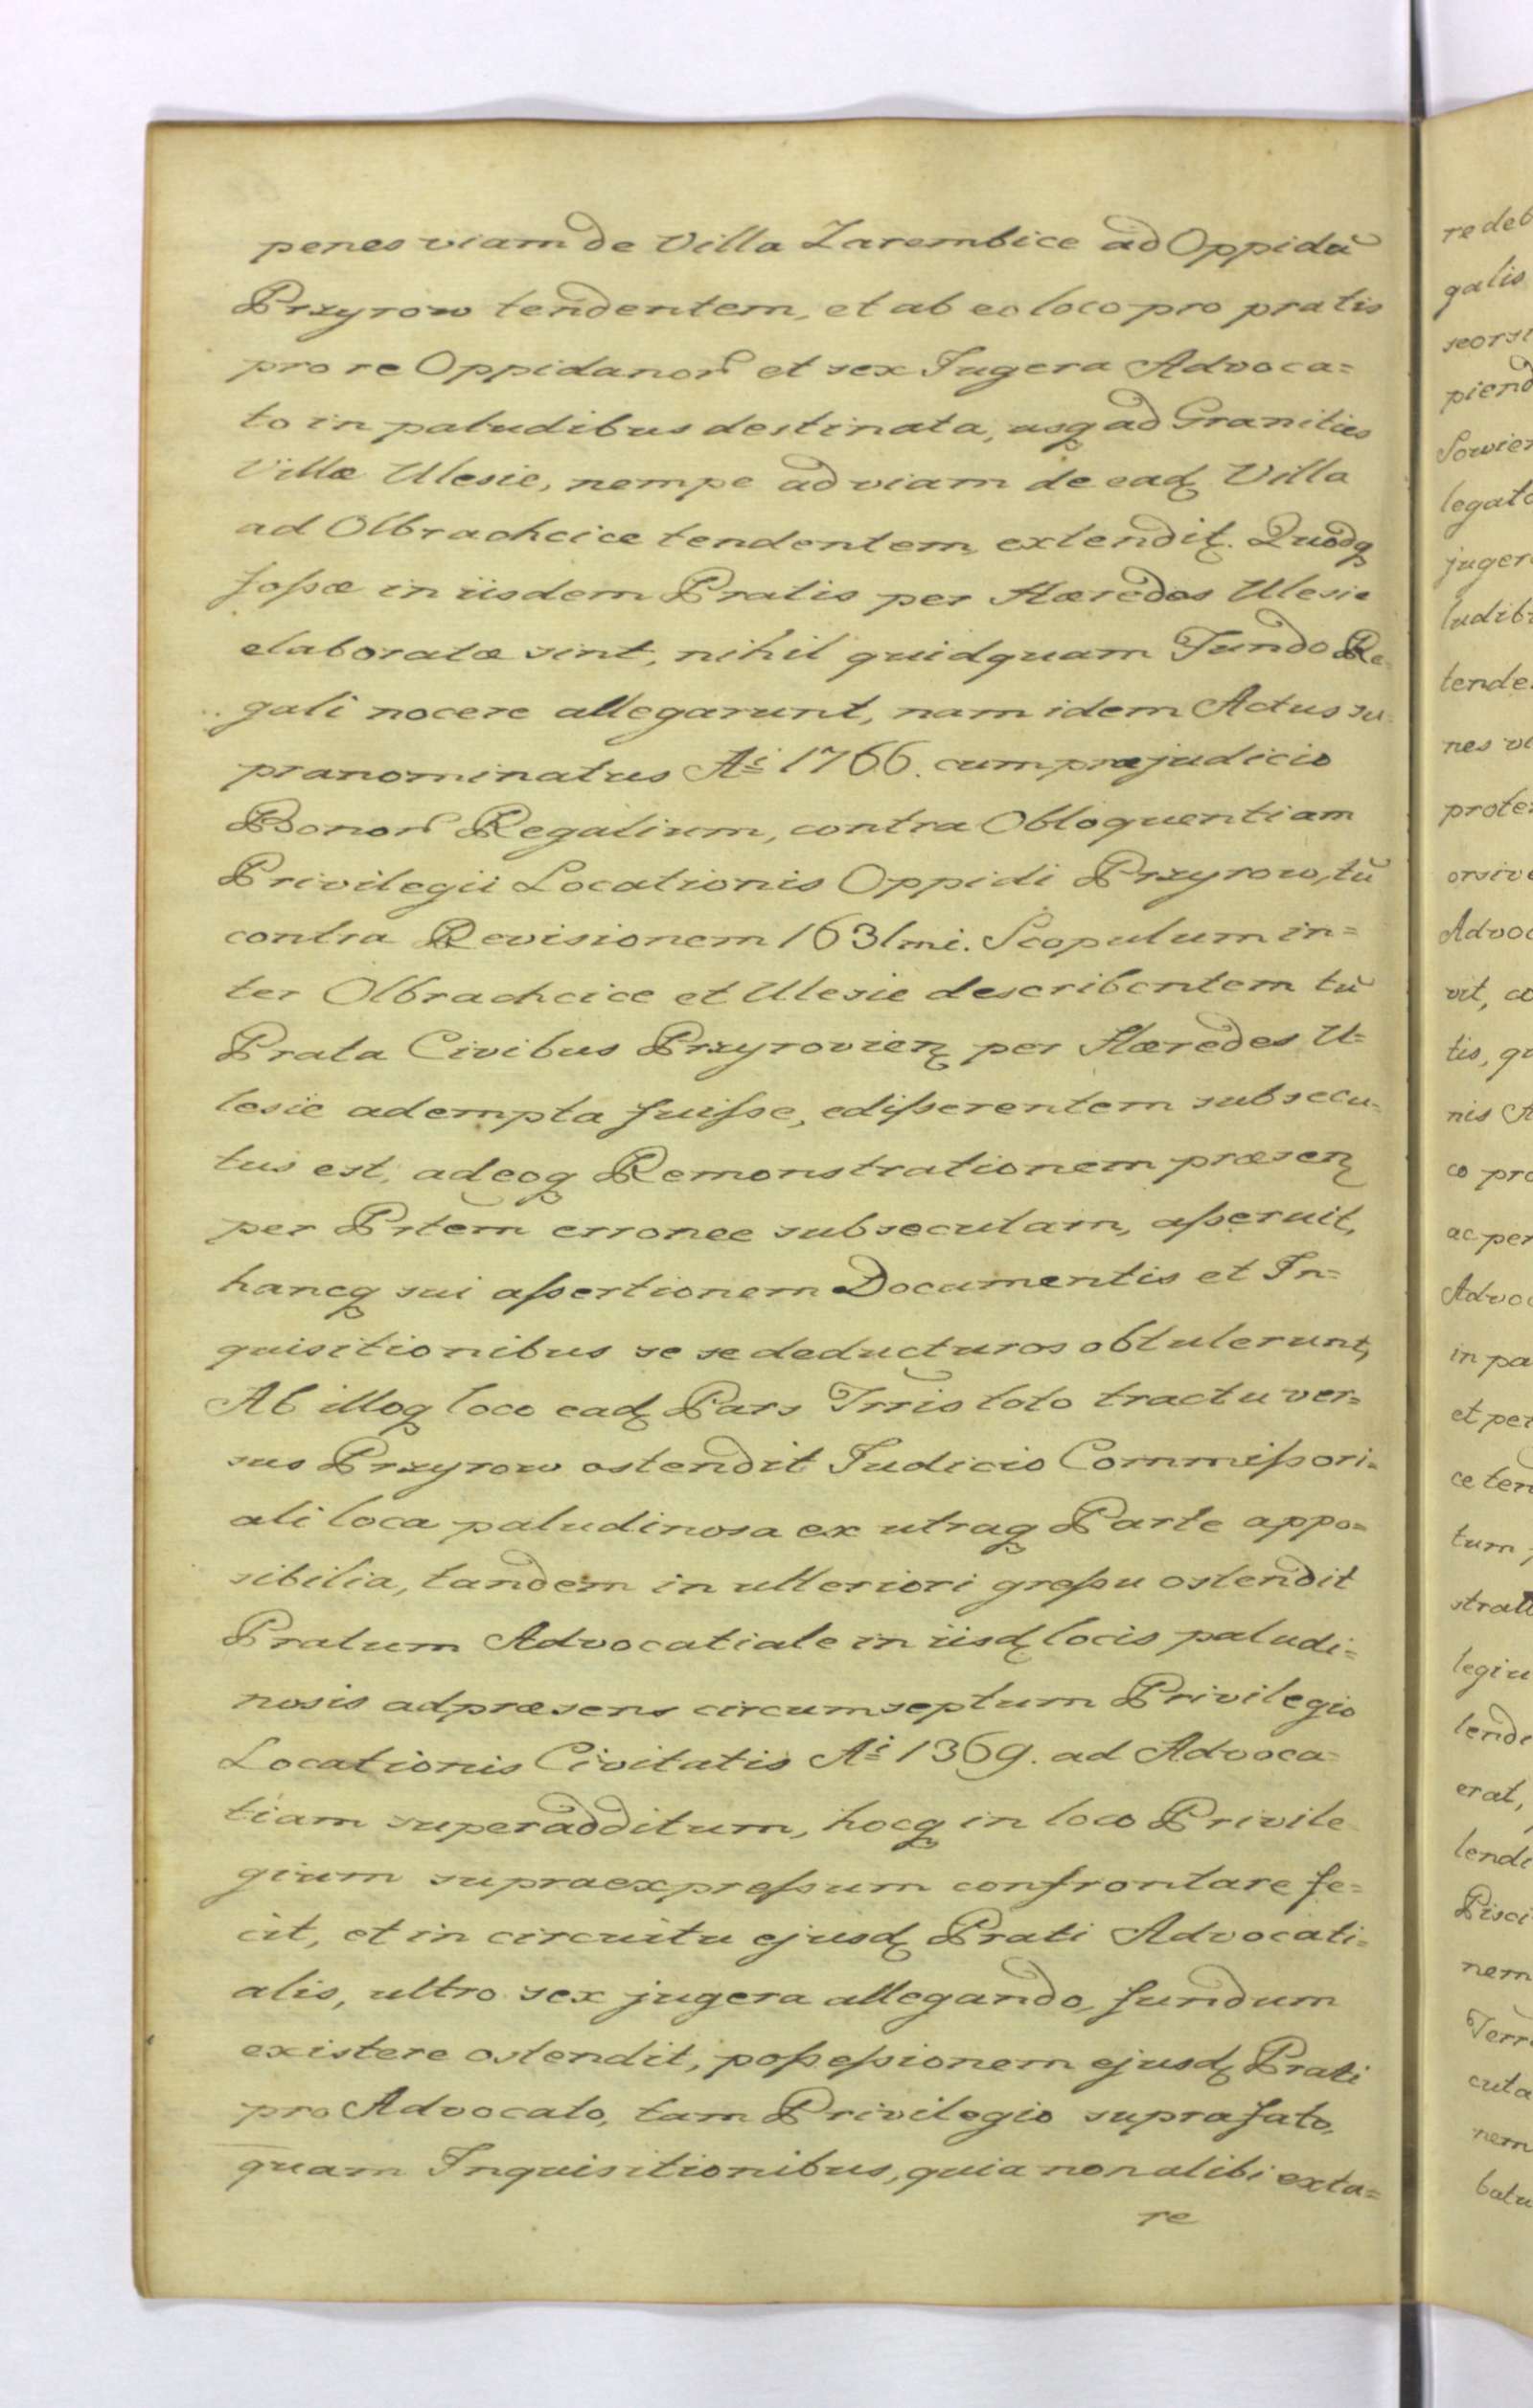 penes viam de Villa Zarembice ad Oppidũ
Przyrow tendentem, et ab eo loco pro pratis
pro re Oppidanor̃ et sex Jugera Advoca=
to in paludibus destinata, usq ad Granities
Villæ Ulesie, nempe ad viam de eadʒ Villa
ad Olbrachcice tendentem extenditʒ. Quodq
fossæ in iisdem Pratis per Hæredes Ulesie
elaboratæ sint, nihil quidquam Fundo Re=
gali nocere allegarunt, nam idem Actus su=
pranominatus Aⁱ 1766. cum præjudicio
Bonor̃ Regalium, contra Obloquentiam
Privilegii Locationis Oppidi Przyrow, tũ
contra Revisionem 1631mi. Scopulum in=
ter Olbrachcice et Ulesie describentem tũ
Prata Civibus Przyrovienʒ per Hæredes U=
lesie adempta fuisse, edisserentem subsecu=
tus est, adeoq Remonstrationem præsenʒ
per Prtem erronee subsecutam, asseruit,
hancq sui assertionem Documentis et In=
quisitionibus se se deducturos obtulerunt,
Ab illoq loco eadʒ Pars Trris toto tractu ver=
sus Przyrow ostendit Judicio Commissori=
ali loca paludinosa ex utraq Parte appo=
sibilia, tandem in ulteriori gressu ostendit
Pratum Advocatiale in iisdʒ locis paludi=
nosis ad præsens circumseptum Privilegio
Locationis Civitatis Aⁱ 1369. ad Advoca=
tiam superadditum, hocq in loco Privile
gium supraexpressum confrontare fe=
cit, et in circuitu ejusdʒ Prati Advocati=
alis, ultro sex jugera allegando, fundum
existere ostendit, possessionem ejusdʒ Prati
pro Advocato, tam Privilegio suprafato,
quam Inquisitionibus, quia non alibi exta=
re
re deb
galis
seorsi
piend
Sowier
legato
juger
ludib
tende
nes vi
prote
orsive
Advoc
vit, a
tis, qu
nis A
co pro
ac per
Advoc
in pa
et per
ce ten
tum
strati
legiu
lendi
erat,
lendi
Pisci
nem
Terr
cuta
nem
batu